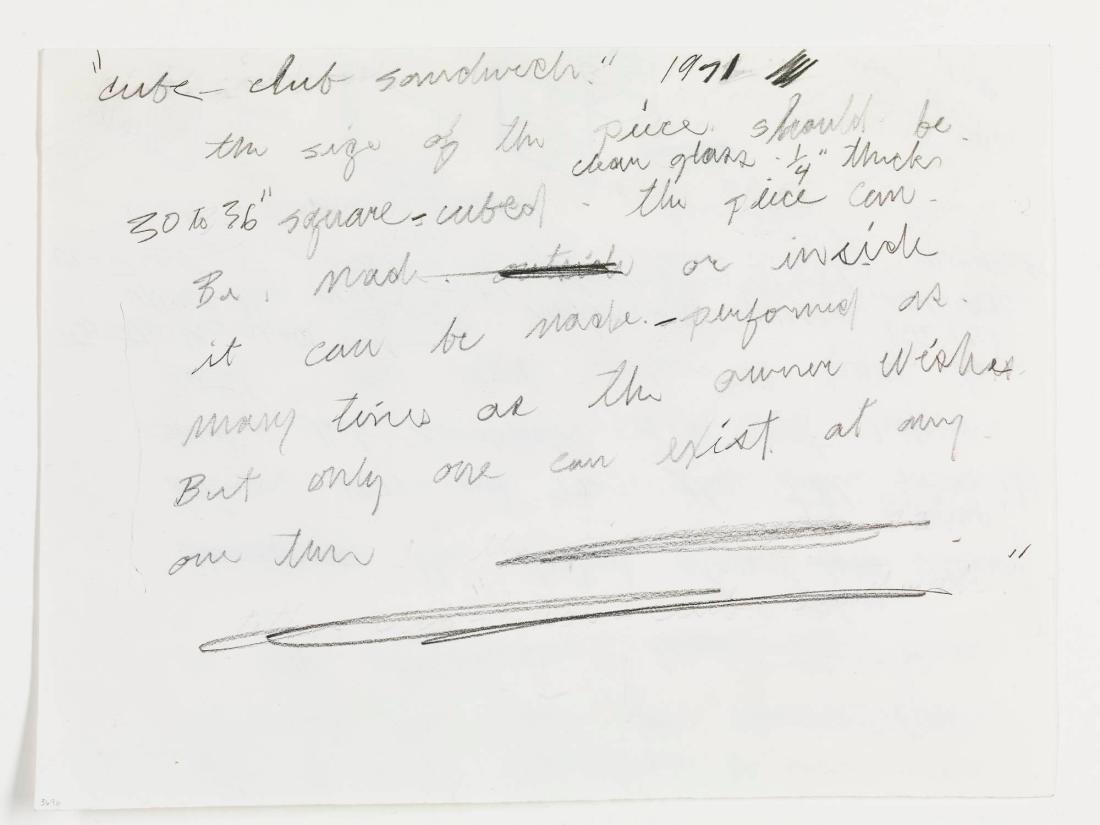 "cube - club sandwich." 1971
the size of the piece. should be.
clear glass. 1/4" thick
30 to 36" square = cubed. the piece can.
Be. made. outside or inside
it can be made. - performed as.
many times as the owner wishes.
But only one can exist. at any.
one time "
3690